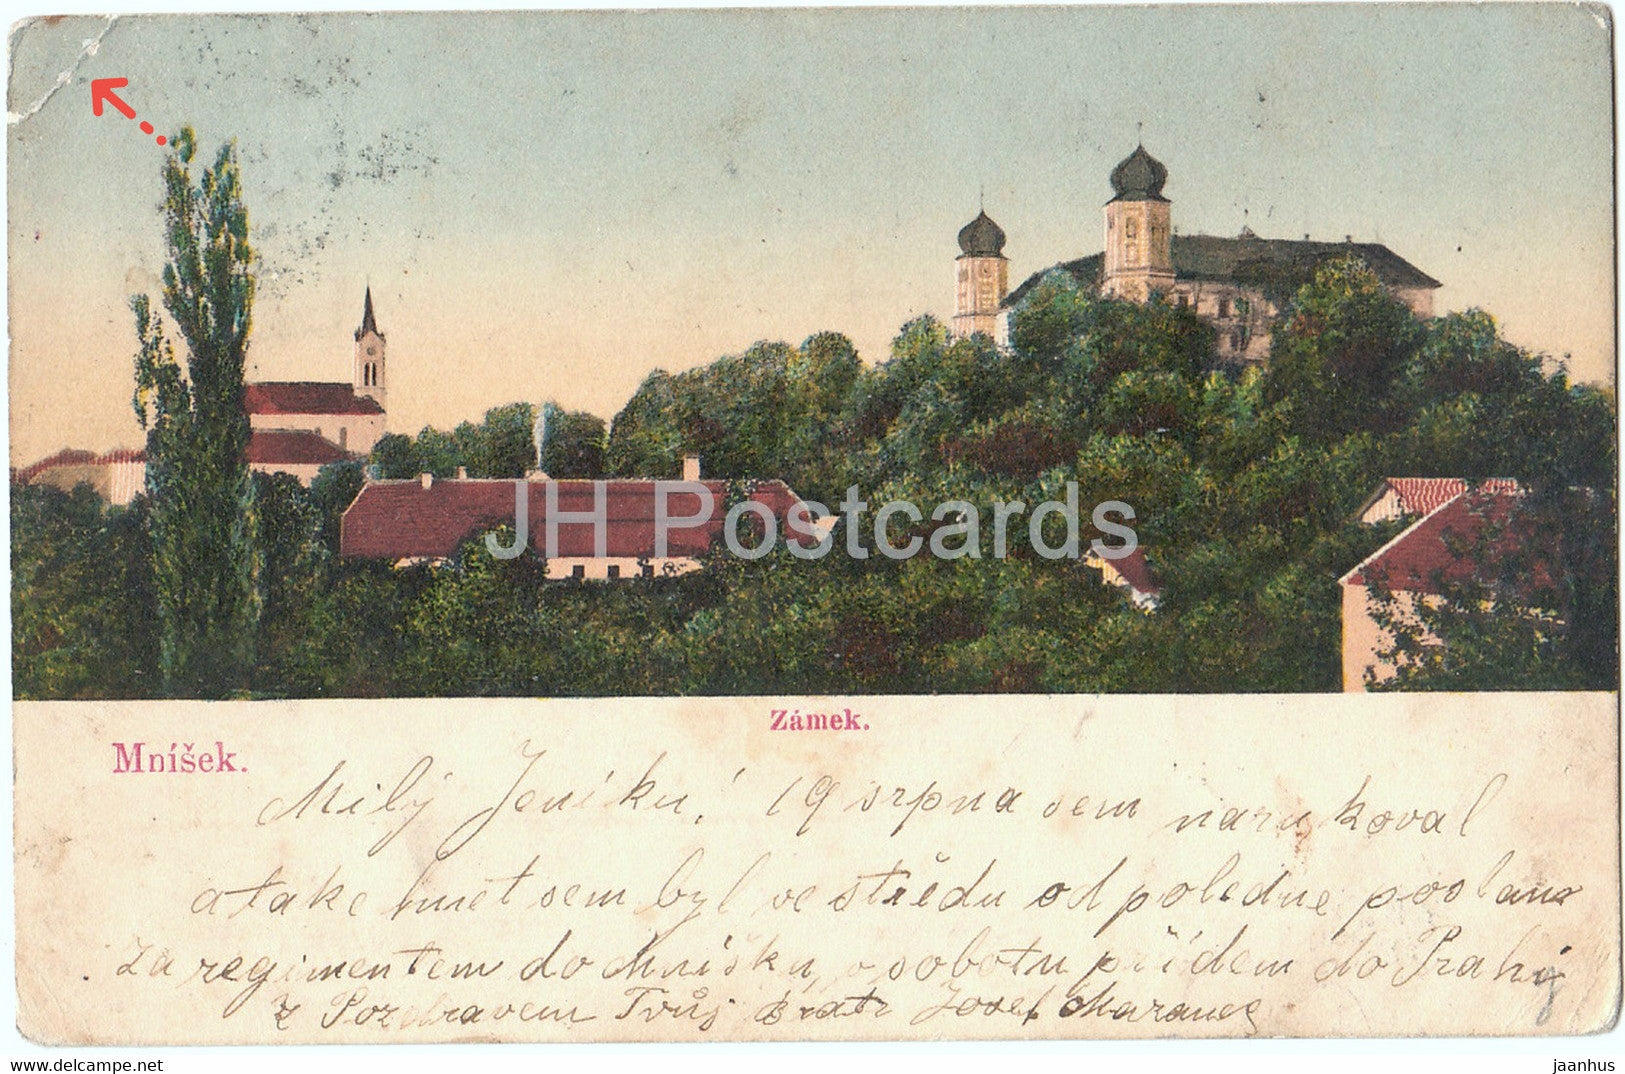 JH Postcards
Zámek.
Mníšek.
Milý Jeníku! 19 srpna sem narukoval
a take hnet sem byl ve středu odpoledne poslan
za regimentem do Mníšku, v sobotu přídem do Prahy
z Pozdravem Tvůj Bratr Josef
www.jaanhus-postcard.com
jaanhus